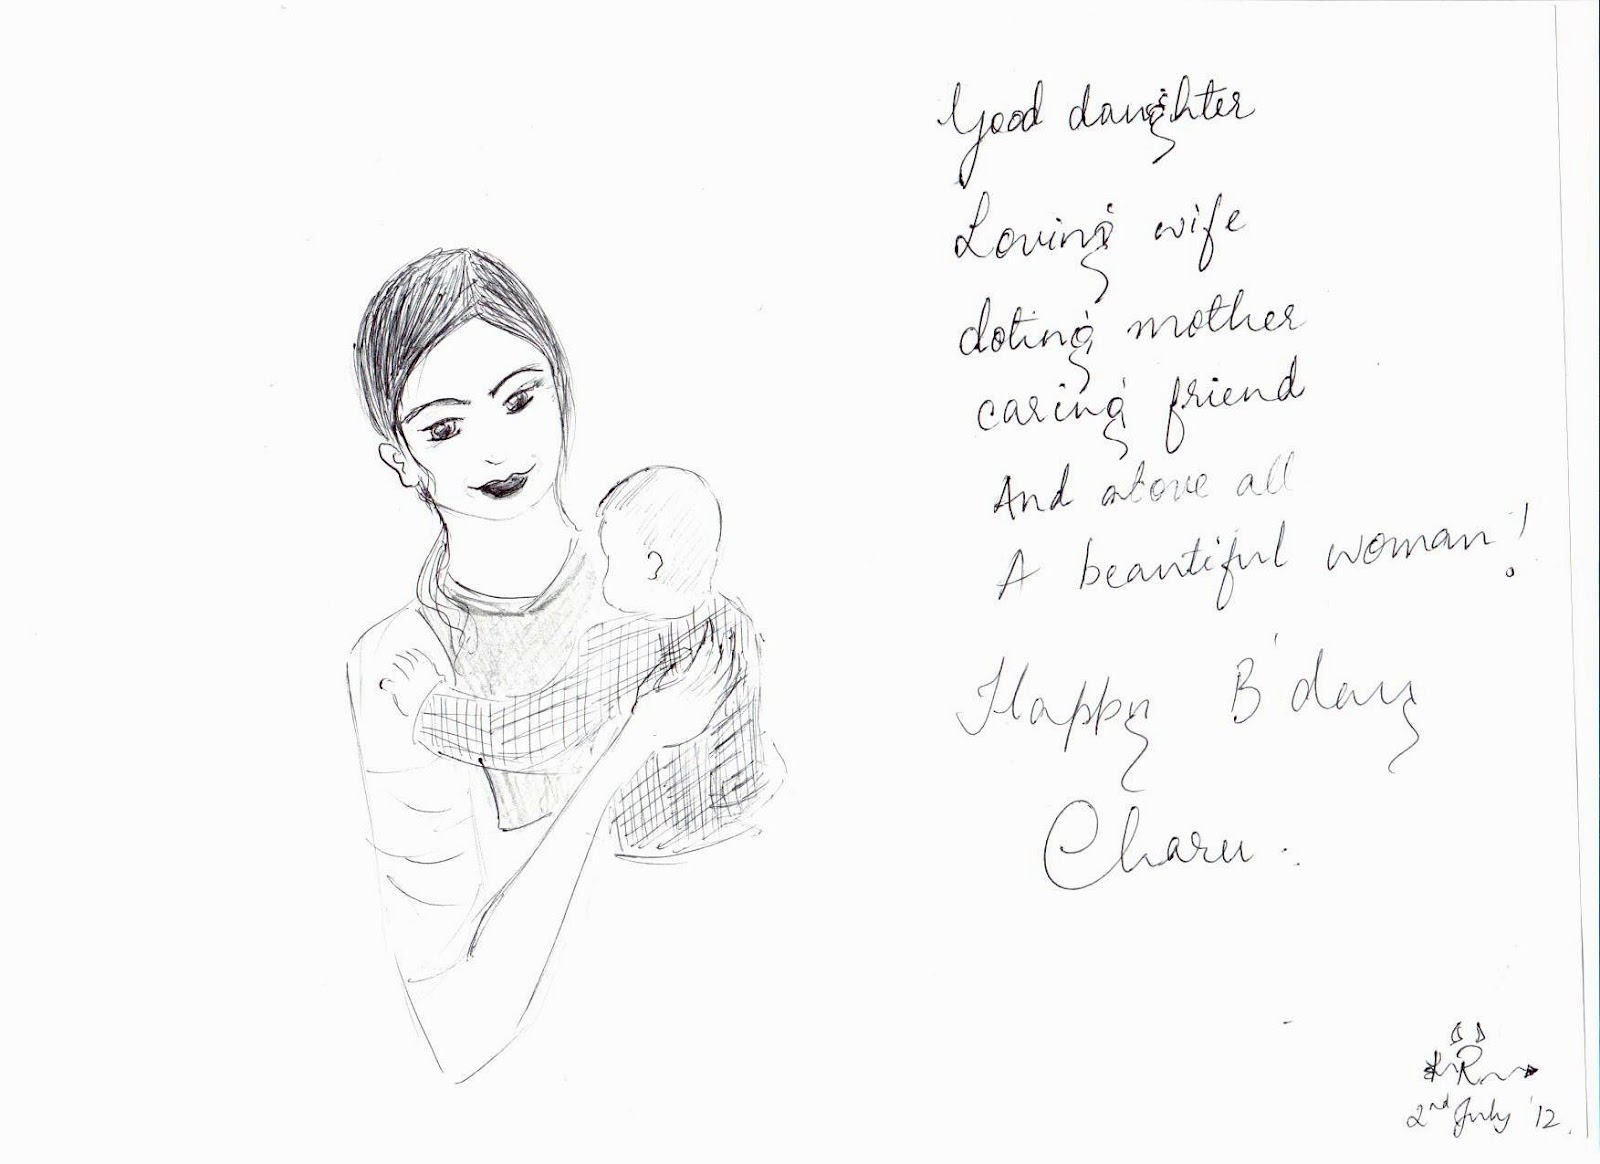 Good daughter
Loving wife
doting mother
caring friend
And above all
A beautiful woman!
Happy B'day
Charu.
2nd July '12.